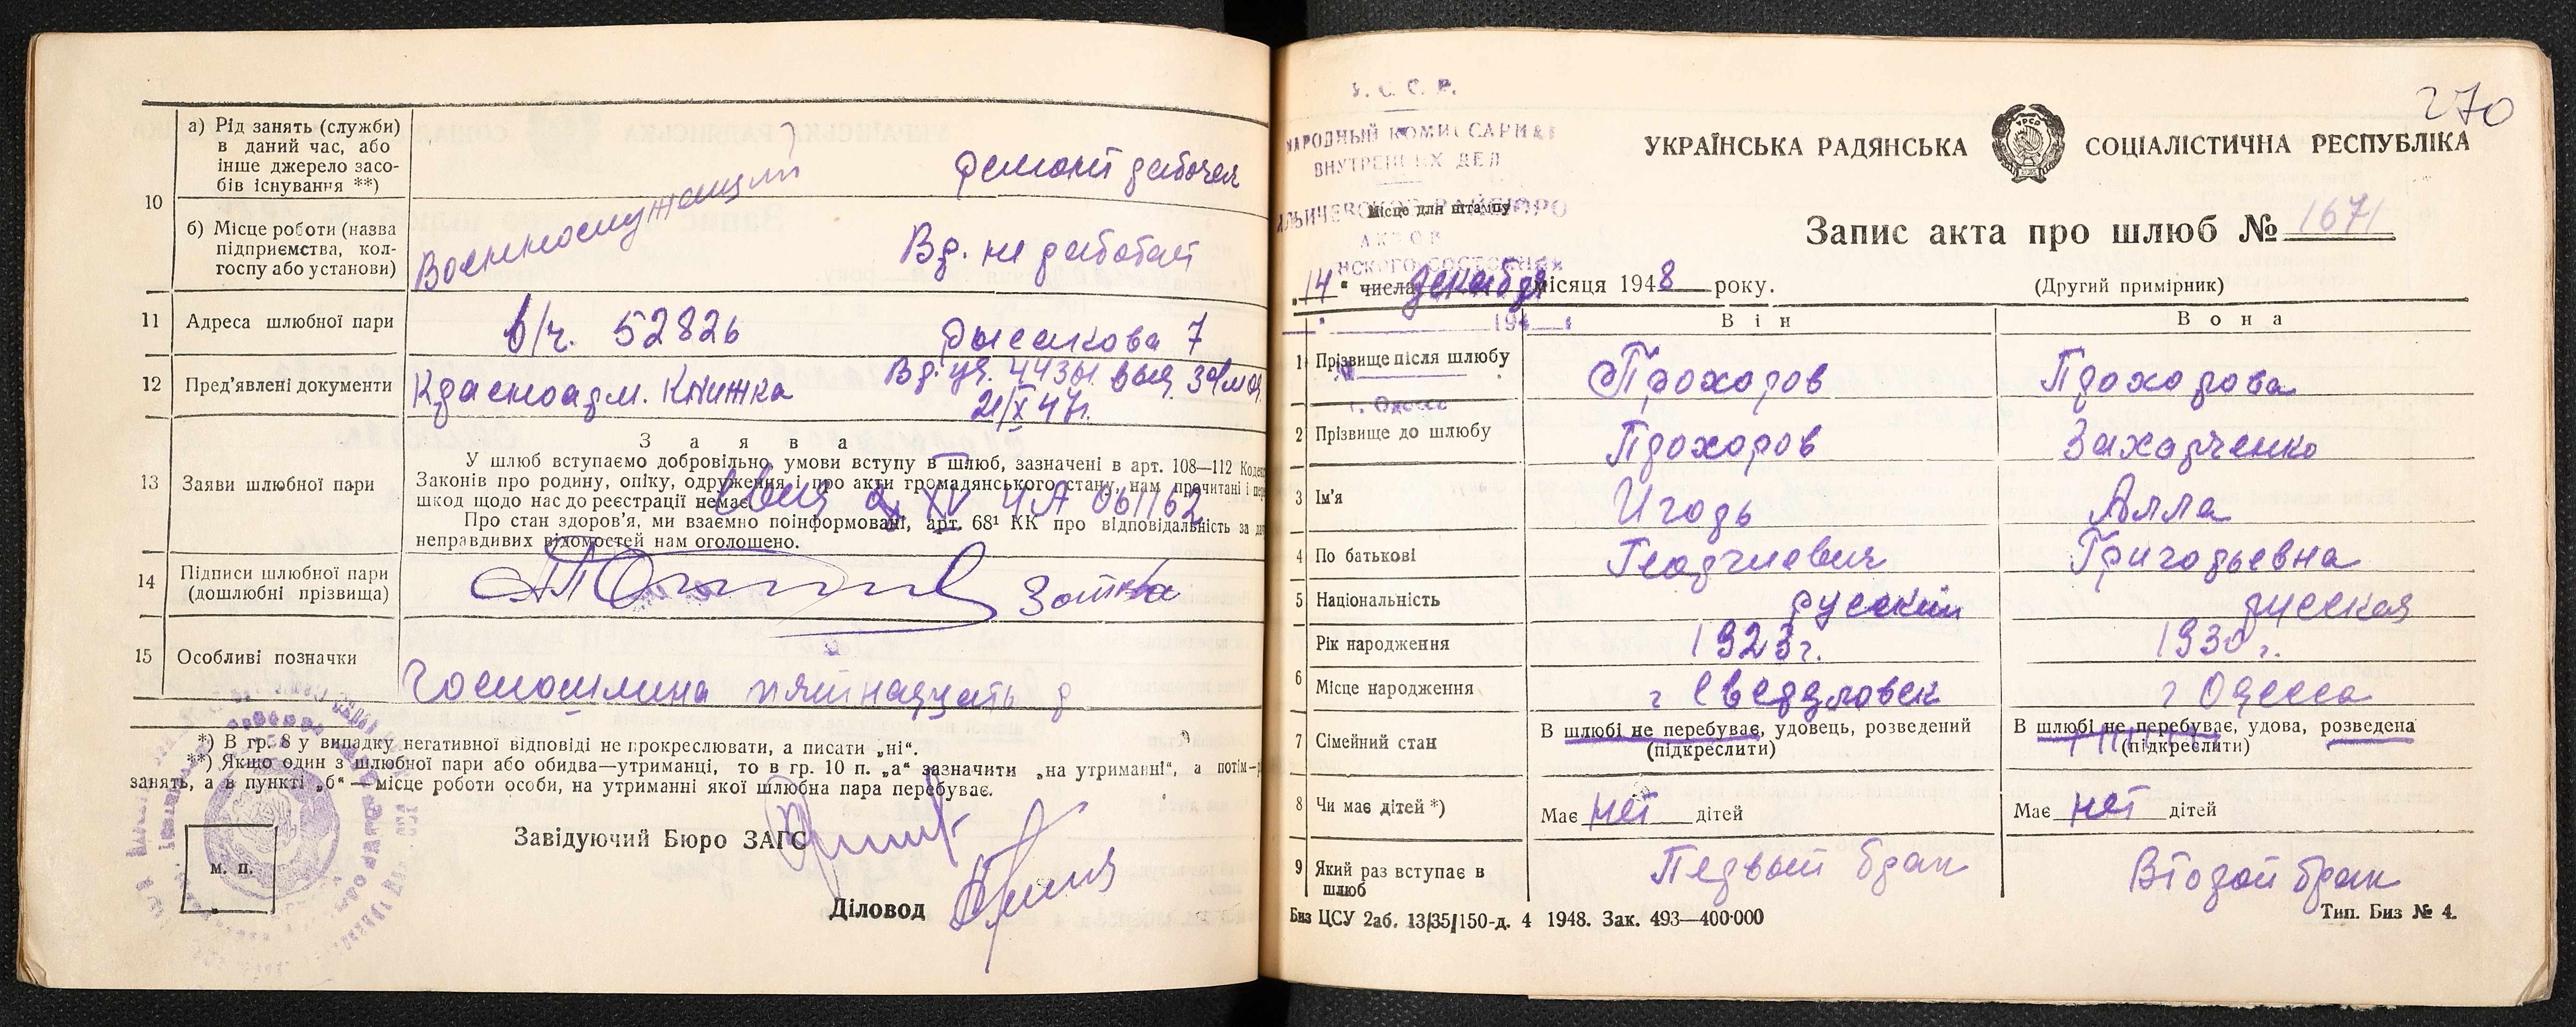 10
а) Рід занять (служби)
в даний час, або
інше джерело засо-
бів існування **)
Военнослужащий
б) Місце роботи (назва
підприємства, кол-
госпу або установи)
Вр. не работает
11 Адреса шлюбної пари
в/ч. 52826
7
12 Пред'явлені документи
Красноарм. Книжка
21/X 47г.
13 Заяви шлюбної пари
Заява
У шлюб вступаємо добровільно, умови вступу в шлюб, зазначені в арт. 108—112 Кодек
Законів про родину, опіку, одруження і про акти громадянського стану, нам прочитані і пе
шкод щодо нас до реєстрації немає.
XV ЧА 061162
Про стан здоров'я, ми взаємно поінформовані, арт. 68¹ КК про відповідальність за
неправдивих відомостей нам оголошено.
14 Підписи шлюбної пари
(дошлюбні прізвища)
15 Особливі позначки
Госпошлина пятнадцать р
*) В гр. 8 у випадку негативної відповіді не прокреслювати, а писати „ні“.
**) Якщо один з шлюбної пари або обидва—утриманці, то в гр. 10 п. „а“ зазначити „на утриманні“, а потім—р
занять, а в пункті „б“—місце роботи особи, на утриманні якої шлюбна пара перебуває.
м. п.
Завідуючий Бюро ЗАГС
Діловод
270
У. С. С. Р.
НАРОДНЫЙ КОМИССАРИАТ
ВНУТРЕННИХ ДЕЛ
УКРАЇНСЬКА РАДЯНСЬКА СОЦІАЛІСТИЧНА РЕСПУБЛІКА
Місце для штампу
Запис акта про шлюб № 1671
„14“ числа декабря місяця 1948 року.
(Другий примірник)
194 г.
г. Одесса
Він Вона
1 Прізвище після шлюбу Прохоров Прохорова
2 Прізвище до шлюбу Прохоров Захарченко
3 Ім'я Игорь Алла
4 По батькові Георгиевич Григорьевна
5 Національність русский русская
6 Рік народження 1923 г. 1930 г.
Місце народження г Свердловск г Одесса
7 Сімейний стан
В шлюбі не перебуває, удовець, розведений
(підкреслити)
В шлюбі не перебуває, удова, розведена
(підкреслити)
8 Чи має дітей *) Має нет дітей Має нет дітей
9 Який раз вступає в
шлюб
Первый брак Второй брак
Биз ЦСУ 2аб. 13/35/150-д. 4 1948. Зак. 493—400·000
Тип. Биз № 4.